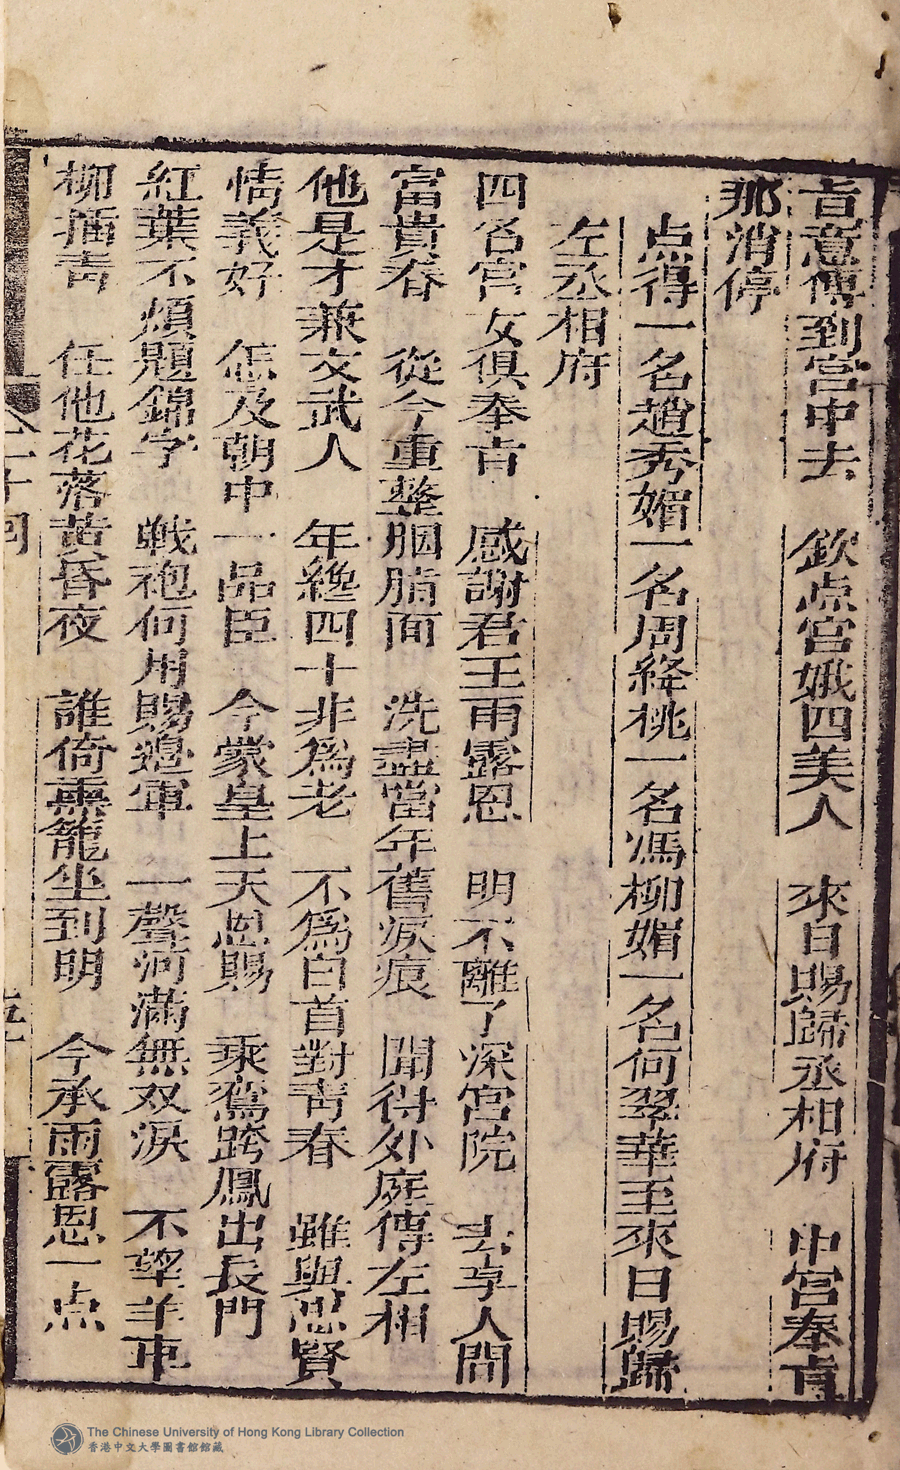 旨意傳到宮中去　欽点宮娥四美人　來日賜歸丞相府　中宮奉旨
那消停
点得一名趙秀媚一名周絳桃一名馮柳媚一名何翠華至來日賜歸
左丞相府
四名宮女俱奉旨　感謝君王雨露恩　明不離了深宮院　去享人間
富貴春　從今重整胭脂面　洗盡當年舊淚痕　聞得外庭傳左相
他是才兼文武人　年纔四十非為老　不為白首對青春　雖與思賢
情義好　怎及朝中一品臣　今蒙皇上天恩賜　乘鸞跨鳳出長門
紅葉不煩題錦字　戰袍何用賜邊軍　一聲河滿無双淚　不望羊車
柳插青　任他花落黃昏夜　誰倚熏籠坐到明　今承雨露恩一点
十回
The Chinese University of Hong Kong Library Collection
香港中文大學圖書館館藏